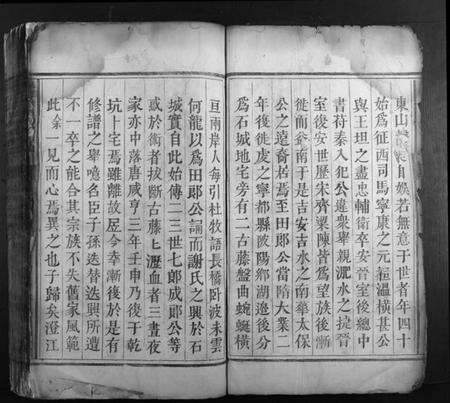 東山㷀㷀自娛若無意于世者年四十
始爲征西司馬寧康之元桓溫橫甚公
與王坦之盡忠輔衛卒安晉室後總中
書符秦入犯公違衆舉親淝水之捷晉
室復安世歷宋齊梁陳皆爲望族後漸
徙前于是吉安吉水之南華太保
公之遠裔居焉至田郎公當隋大業二
年復徙虔之寧都縣陂陽鄉湖遼後分
爲石城地宅旁有二古藤盤曲蜿蜒橫
亘兩岸人每引杜牧語長橋卧波未雲
何龍以爲田郎公誦而謝氏之興於石
城實自此始傳二三世七郎成郎公等
或於衛者拔斷古藤匕瀝血者三晝夜
家亦中落唐咸亨三年壬申乃復于乾
坑卜宅焉雖離故居今幸漸復於是有
修譜之舉噫名臣子孫迭替迭興所遭
不一卒之能合其宗族不失舊家風範
此余一見而心焉異之也子歸矣澄江